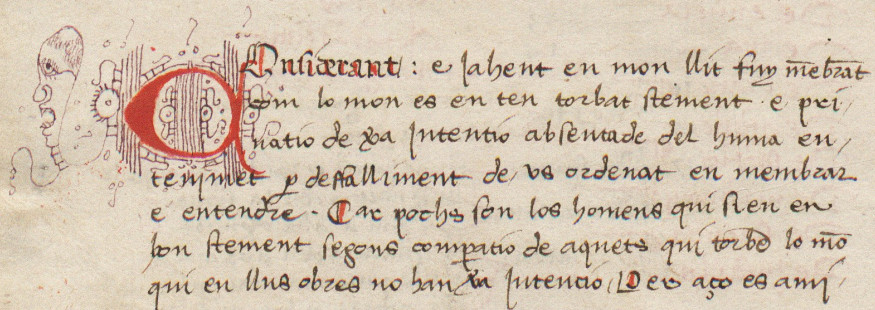 Considerant : e Jahent en mon llit fuy mēbrat
com lo mon es en ten torbat stement e pri
uatio de xa Intentio absentade del huma en
tenimet ꝑ deffalliment de us ordenat en membrar
e entendre . Car pochs son los homens qui sien en
bon stement segons comꝑatio de aquets qui torbē lo mō
qui en llus obres no han xa Intencio / Per aço es a mi